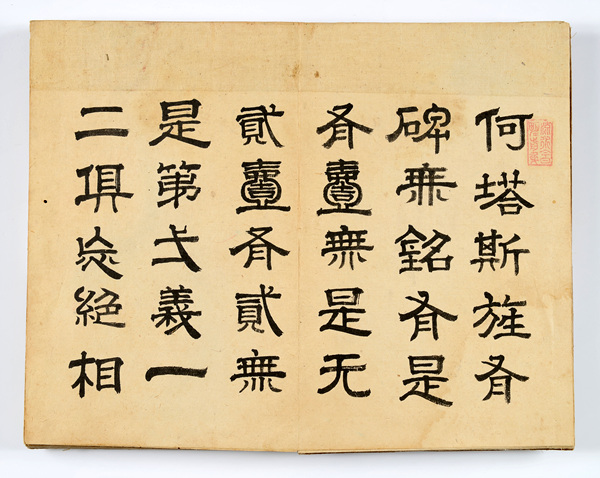 何塔斯旌有
碑無銘有是
有壹無是无
貳壹有貳無
是第弌義一
二俱忘絕相